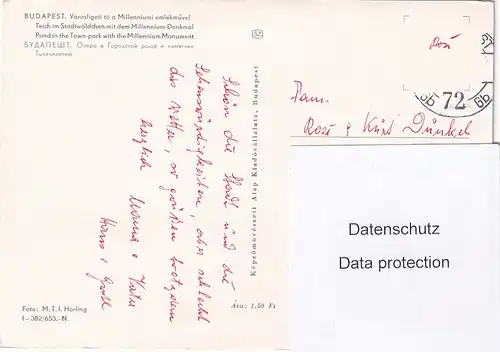 BUDAPEST. Városligeti tó a Millenniumi emlékművel
Teich im Stadtwäldchen mit dem Millennium-Denkmal
Pond in the Town-park with the Millennium Monument
БУДАПЕШТ. Озеро в Городской роще и памятник
Тысячелетию
52
Schön die Stadt und die
Sehenswürdigkeiten, aber schlecht
das Wetter, so grüßen trotzdem
herzlich Mama & Vater
Hans &
Foto: M. T. I. Horling
I—382/653.—N.
Képzőművészeti Alap Kiadóvállalata, Budapest
Ára: 1,50 Ft
72
Fam.
Rosi & Kurt Dunkel
Datenschutz
Data protection